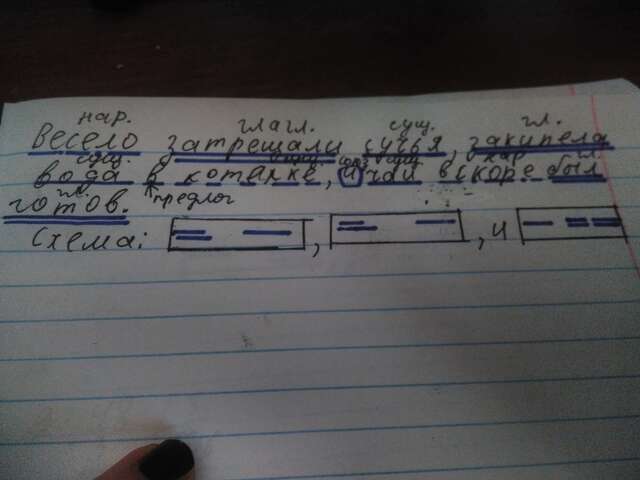 нар. глагл. сущ. гл.
Весело затрещали сучья, закипела
сущ. сущ. союз сущ. нар. гл.
вода в котелке, и чай вскоре был
гл. предлог
готов.
Схема: , , и